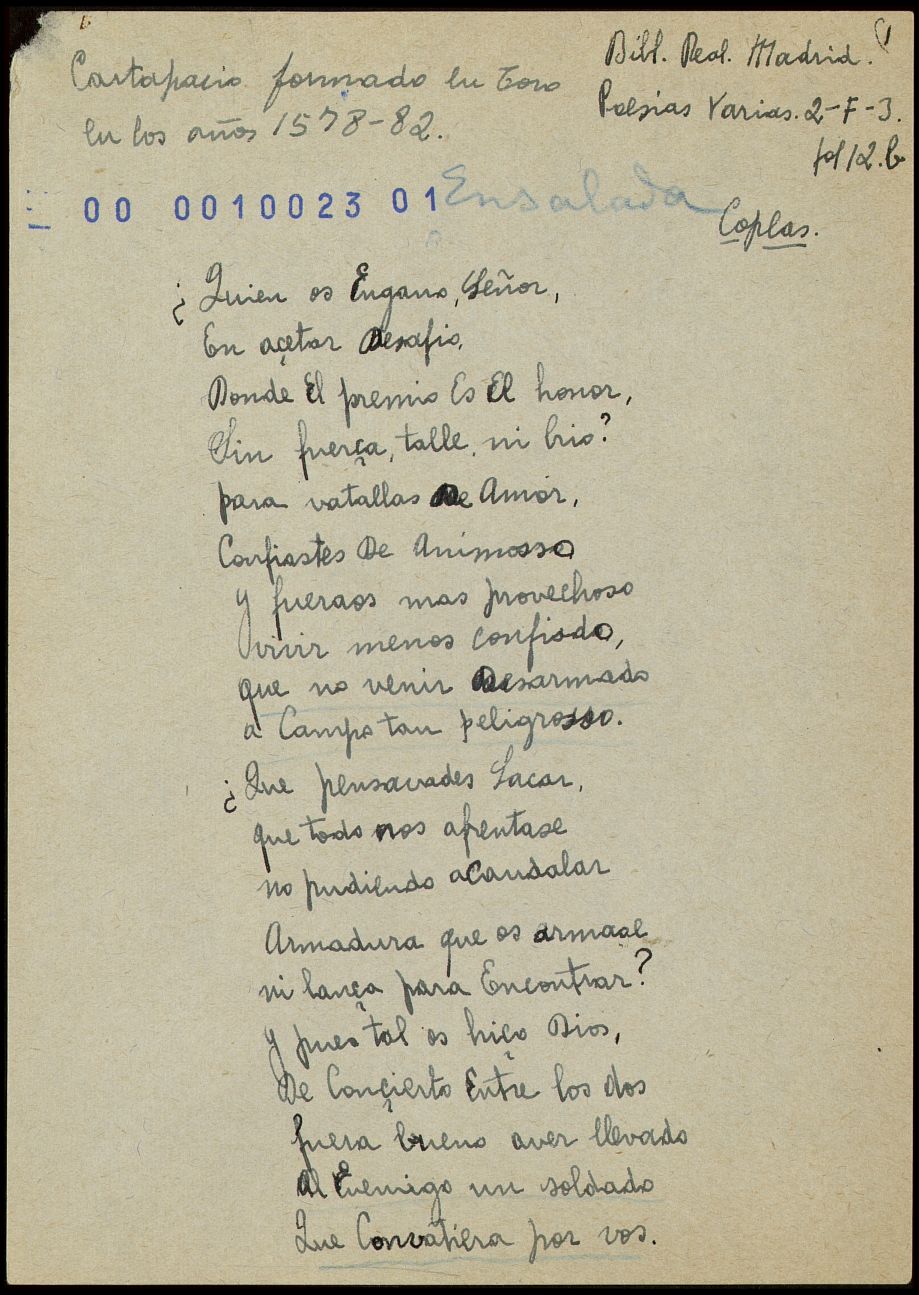 Cartapacio formado en Toro
en los años 1578-82.
Bibl. Real. Madrid.
Poesías Varias. 2-F-3.
fol 12. b
00 0010023 01
Ensalada
Coplas.
¿Quien os Engano, Señor,
En açetar Desafio,
Donde El premio Es El honor,
Sin fuerça, talle, ni brio?
para vatallas De Amor,
Confiastes De Animosso
y fueraos mas provechoso
vivir menos confiado,
que no venir Desarmado
a Campo tan peligrosso.
¿Que pensavades Sacar,
que todo nos afrentase
no pudiendo aCaudalar
Armadura que os armase
ni lança para Encontrar?
y pues tal os hiço Dios,
De Conçierto Entre los dos
fuera bueno aver llevado
Al Enemigo un soldado
Que Convatiera por vos.